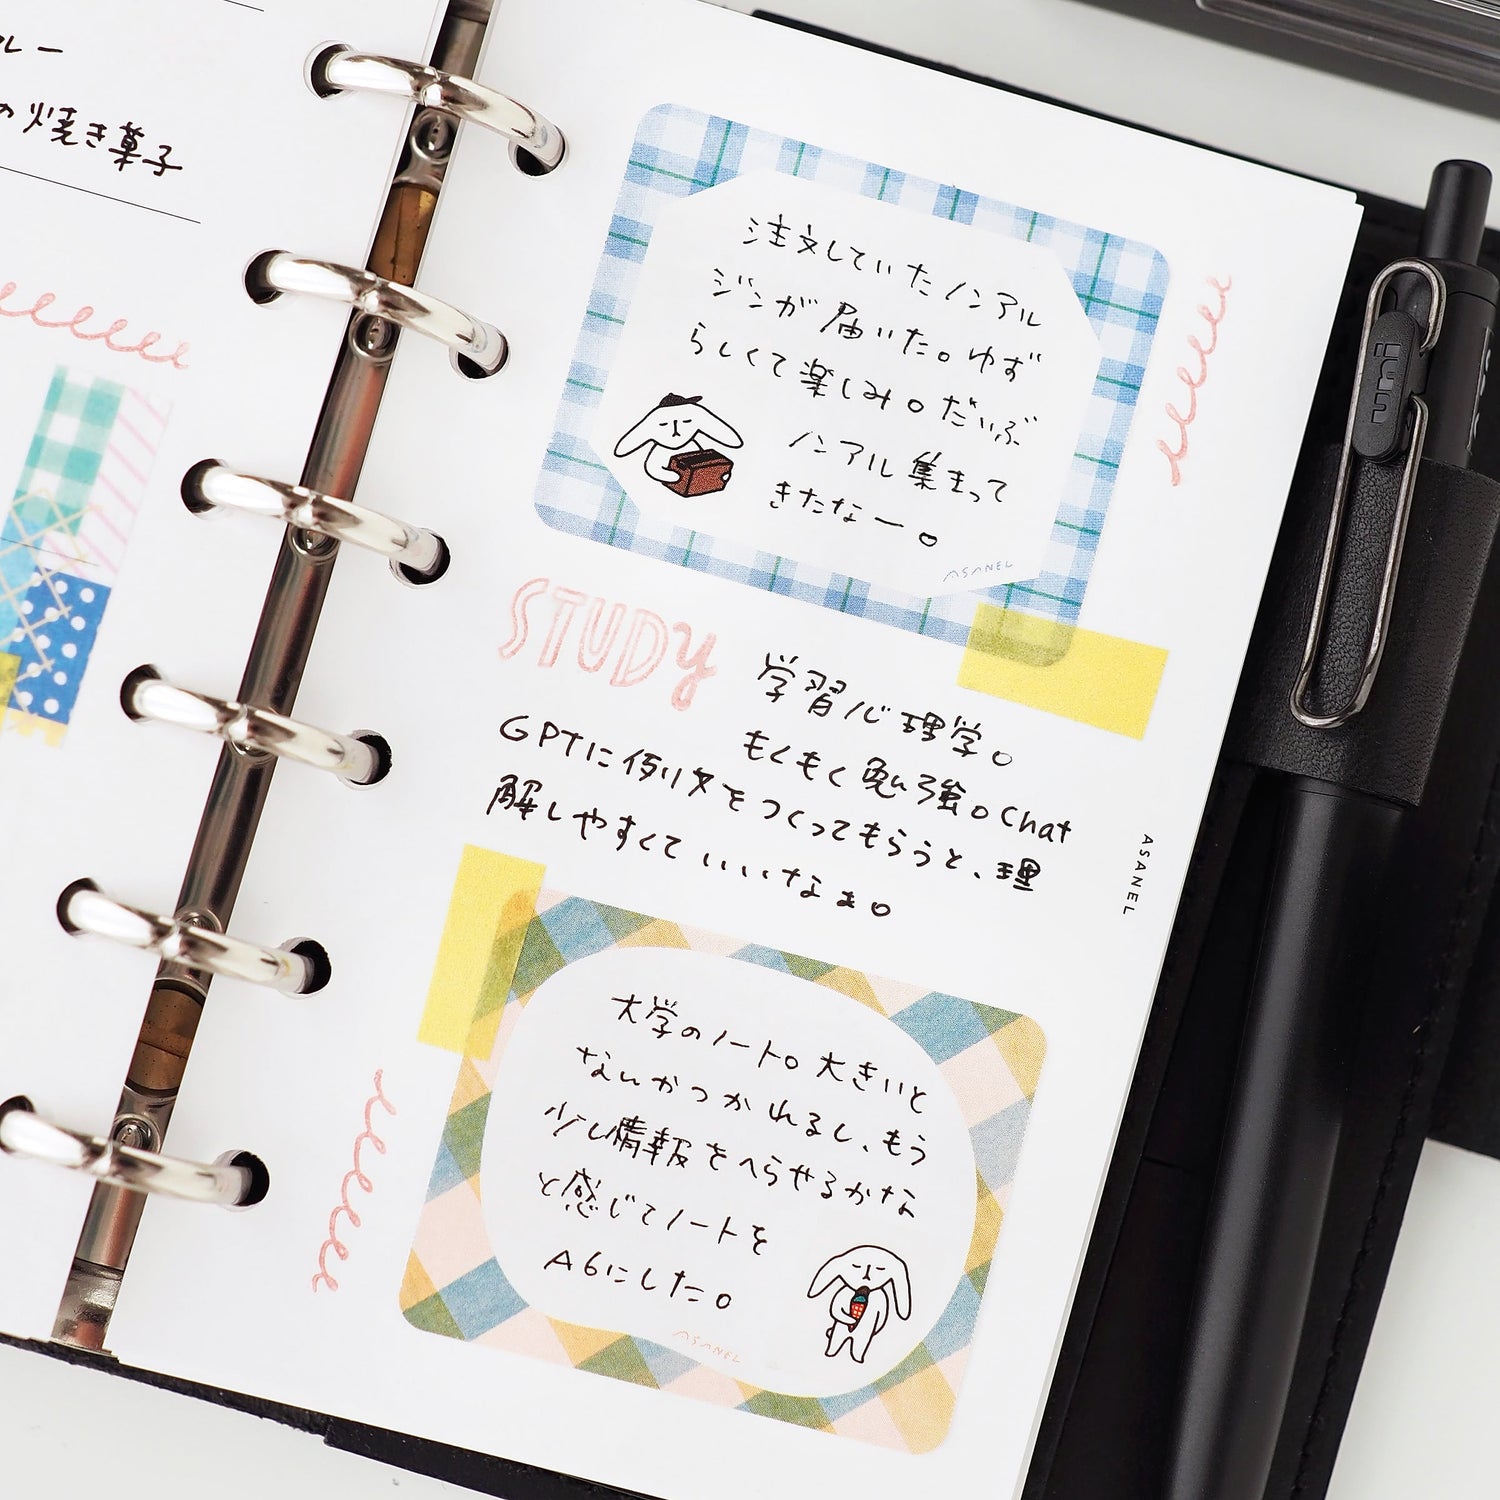 レー
の焼き菓子
注文していたノンアル
ジンが届いた。ゆず
らしくて楽しみ。だいぶ
ノンアル集まって
きたなー。
ASANEL
STUDY
学習心理学。
もくもく勉強。Chat
GPTに例文をつくってもらうと、理
解しやすくていいなぁ。
大学のノート。大きいと
なんかつかれるし、もう
少し情報をへらせるかな
と感じてノートを
A6にした。
ASANEL
ASANEL
uni